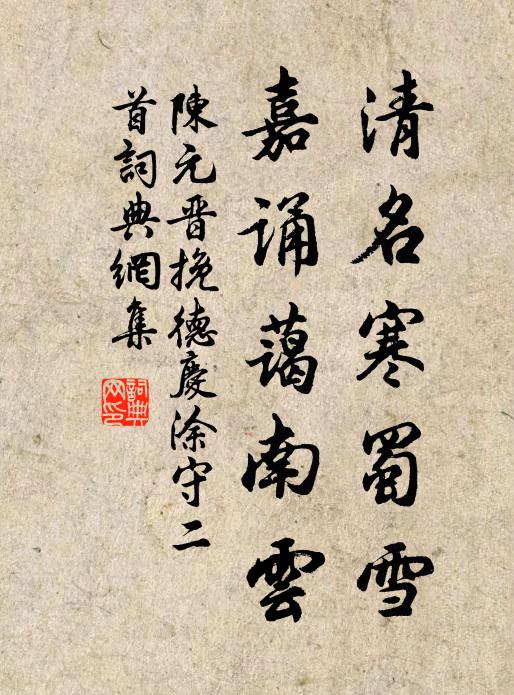 清名寒蜀雪
嘉誦藹南雲
陳元晋挽德慶涂守二
首詞典網集
詞典網印